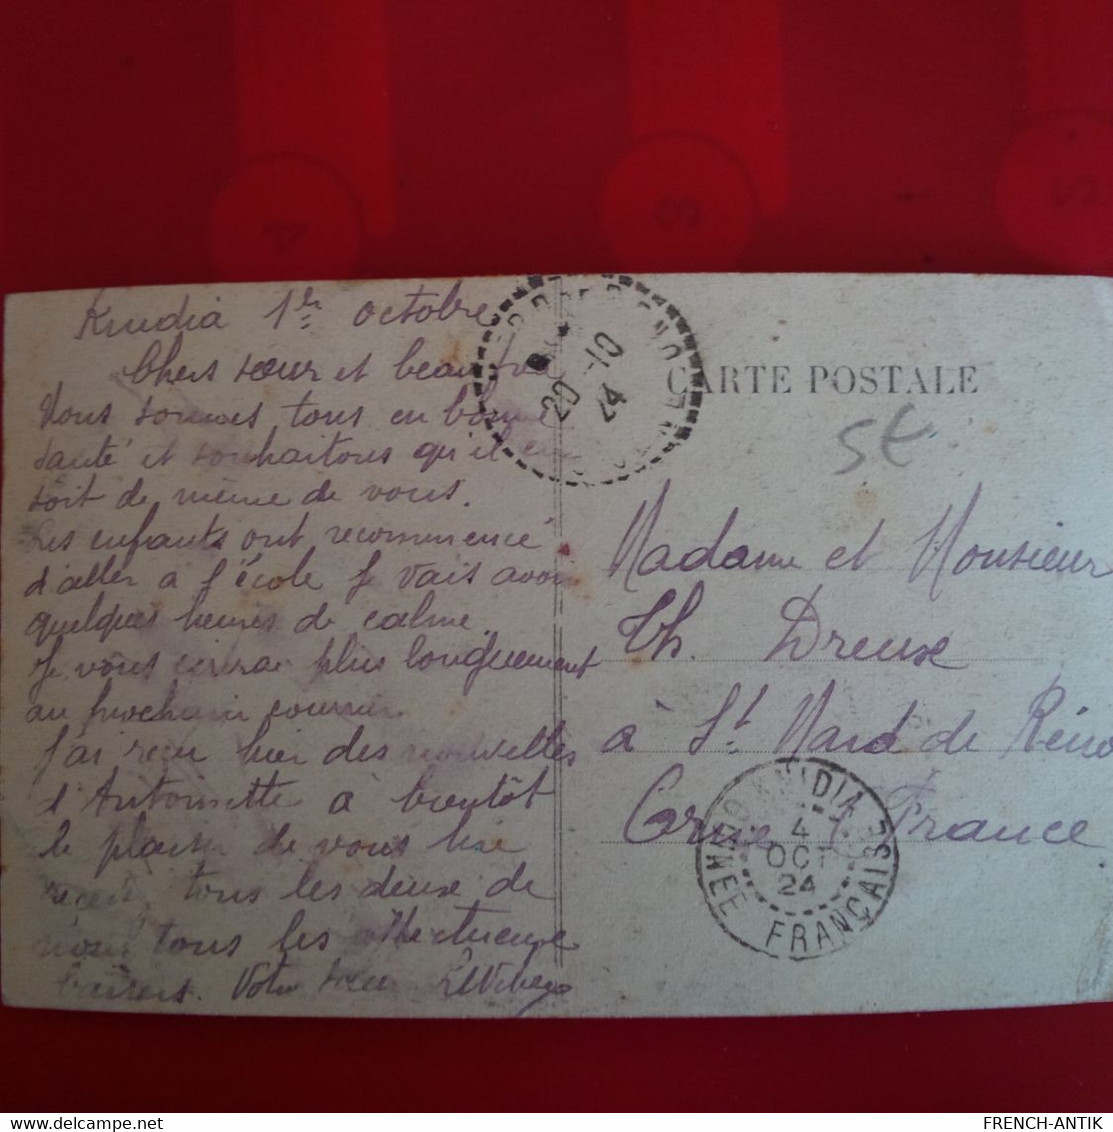 Kindia 1er octobre
Chers sœur et beau
Nous sommes tous en bonne
santé et souhaitons qu'il en
soit de même de vous.
Les enfants ont recommencé
d'aller a l'école je vais avoir
quelques heures de calme.
Je vous écrirai plus longuement
au prochain courrier
J'ai reçu hier des nouvelles
d'Antoinette à bientôt
le plaisir de vous lire
recevez tous les deux de
nous tous les affectueux
baisers. Votre sœur
CARTE POSTALE
5€
Madame et Monsieur
Th. Dreux
a St Mard de Réno
Orne France
20 -10
24
KINDIA
4
OCT
24
GUINEE FRANÇAISE
4
3
5
FRENCH-ANTIK